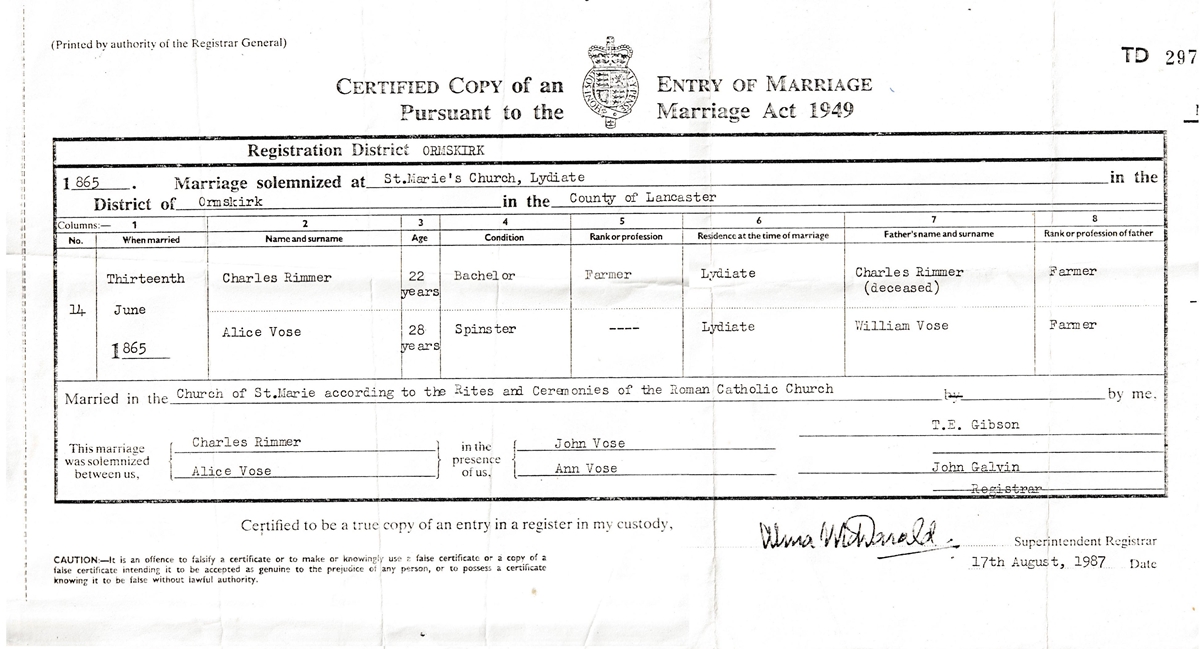 (Printed by authority of the Registrar General)
TD 297
CERTIFIED COPY of an ENTRY OF MARRIAGE
Pursuant to the Marriage Act 1949
Registration District ORMSKIRK
1865. Marriage solemnized at St.Marie's Church, Lydiate in the
District of Ormskirk in the County of Lancaster
Columns:— 1 2 3 4 5 6 7 8
No. When married Name and surname Age Condition Rank or profession Residence at the time of marriage Father's name and surname Rank or profession of father
Thirteenth Charles Rimmer 22 Bachelor Farmer Lydiate Charles Rimmer Farmer
years (deceased)
14 June
Alice Vose 28 Spinster ---- Lydiate William Vose Farmer
1865 years
Married in the Church of St.Marie according to the Rites and Ceremonies of the Roman Catholic Church by by me.
T.E. Gibson
This marriage was solemnized between us, Charles Rimmer in the presence of us, John Vose
Alice Vose Ann Vose John Galvin
Registrar
Certified to be a true copy of an entry in a register in my custody,
Superintendent Registrar
CAUTION:—It is an offence to falsify a certificate or to make or knowingly use a false certificate or a copy of a
false certificate intending it to be accepted as genuine to the prejudice of any person, or to possess a certificate
knowing it to be false without lawful authority.
17th August, 1987 Date